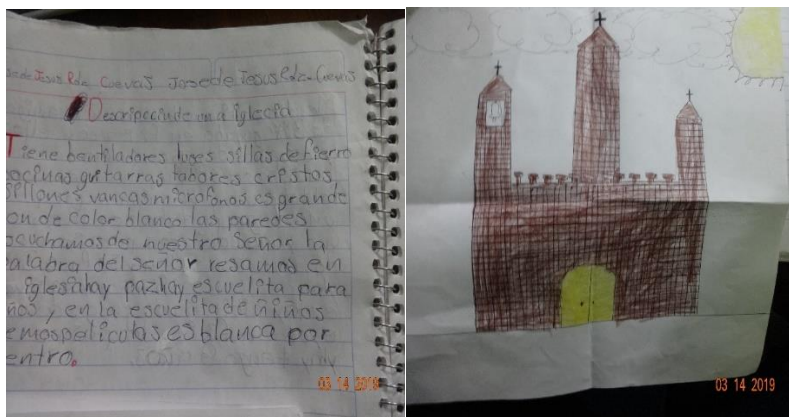 de Jesus Rdz Cuevas Jose de Jesus Rdz. Cuevas
Descripciónde una iglecia
Tiene bentiladores luses sillas de fierro
bocinas guitarras tabores cristos
sillones vancas microfonos es grande
on de color blanco las paredes
scuchamos de nuestro señor la
palabra del señor resamos en
iglesiahay pazhay escuelita para
ños, en la escuelita de niños
emospeliculas es blanca por
entro.
03 14 2019
03 14 2019